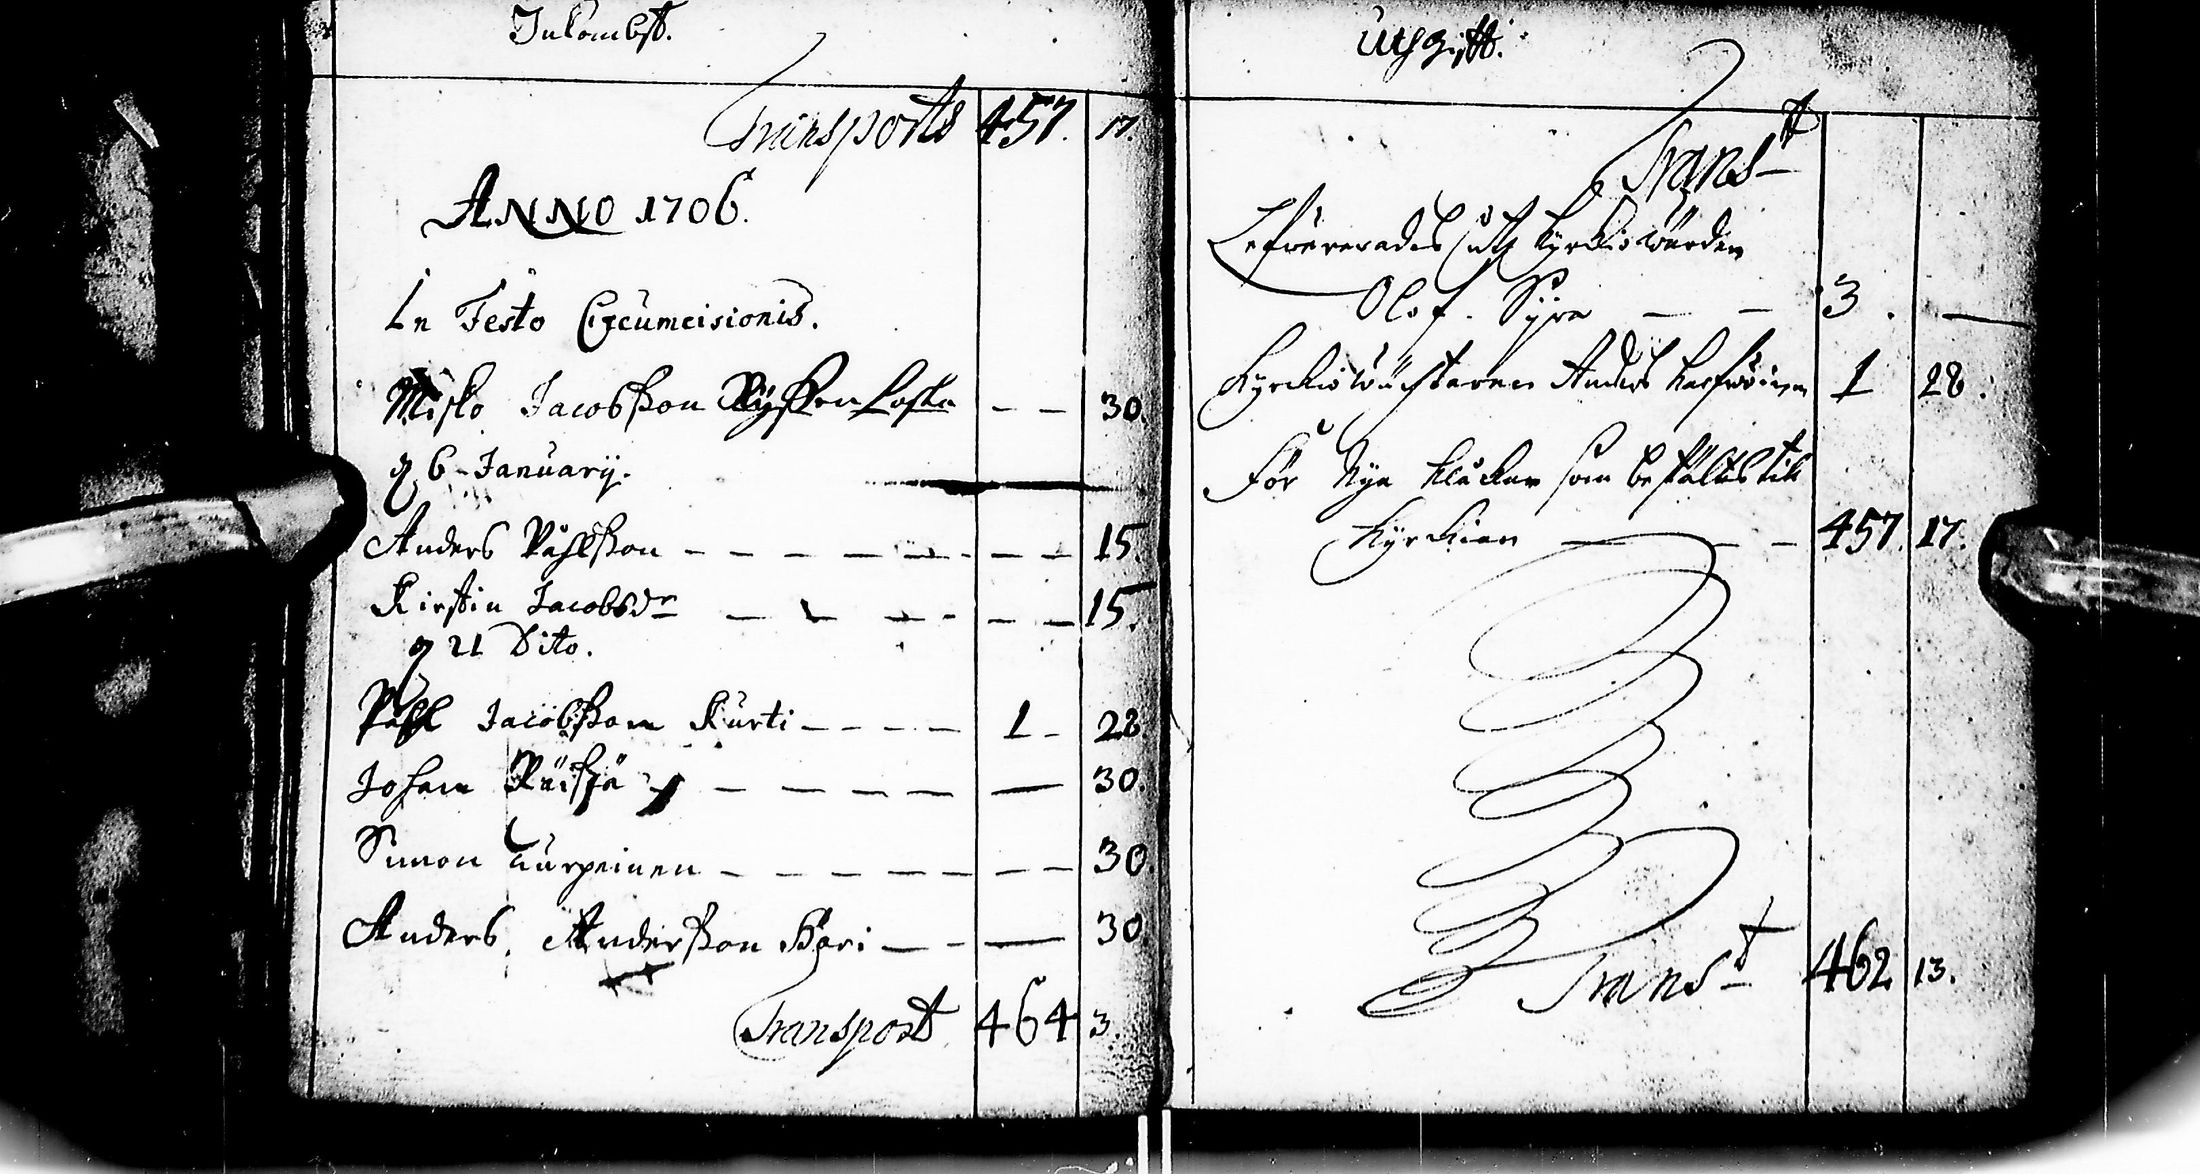 Inkombst.
Transports 457. 17.
ANNO 1706.
In Festo Circumcisionis.
Misko Jacobsson - - 30.
d 6 January.
Anders Påhlsson - - - - - - - - 15.
Kirstin Jacobsdr - - - - - - - 15.
d 21 Dito.
Påhl Jacobsson Kurti - - - - 1 - 28
Johan Räisjä - - - - - - 30.
Simon Turpeinen - - - - - - - 30.
Anders Andersson Häri - - - 30
Transport 464 3.
Uthgifft.
Transt
Lefwererades uth kyrckiowärden
Olof Syra - - 3. -
Kyrckiowächtaren Anders 1 28.
För Nya kläckor som bestältes till
Kyrckian - - - 457. 17.
Transt 462 13.